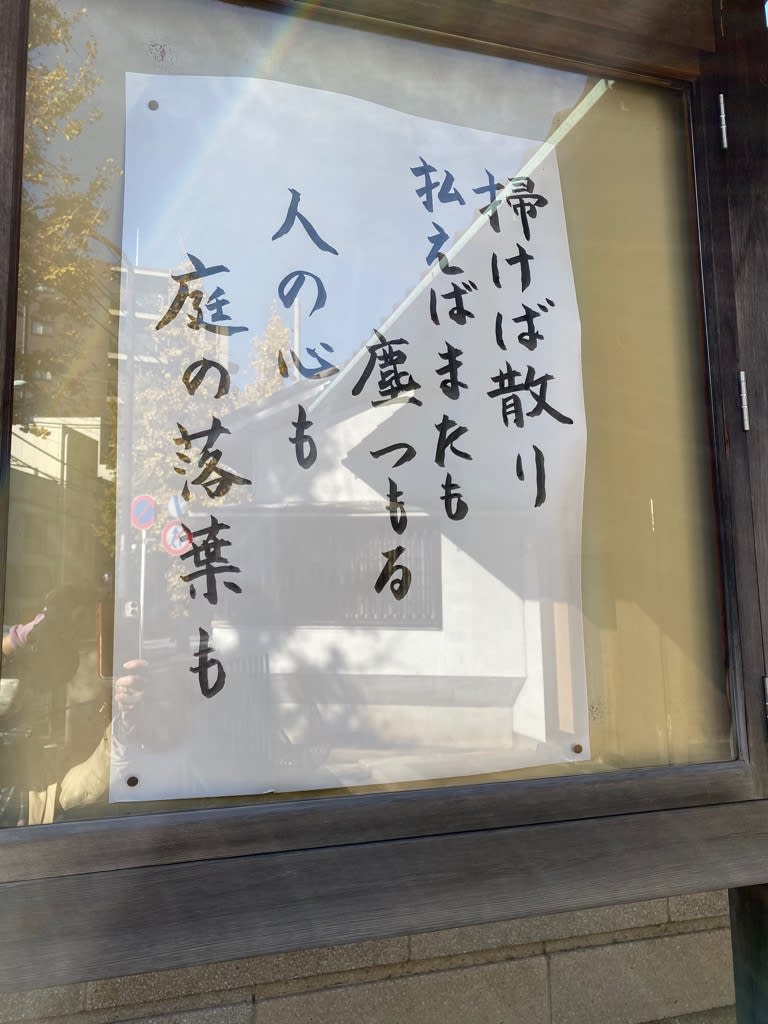 掃けば散り
払えばまたも
塵つもる
人の心も
庭の落葉も